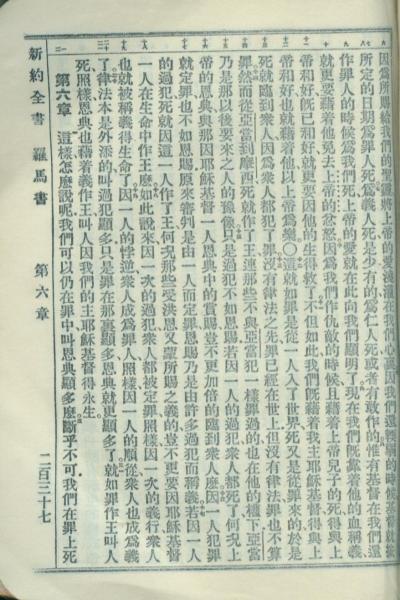 因爲所賜給我們的聖靈將上帝的愛澆灌在我們心裏因我們還軟弱的時候基督就按
所定的日期爲罪人死爲義人死是少有的爲仁人死或者有敢作的惟有基督在我們還
作罪人的時候爲我們死上帝的愛就在此向我們顯明了現在我們旣靠着他的血稱義
就更要藉着他免去上帝的忿怒因爲我們作仇敵的時候且藉着上帝兒子的死得與上
帝和好旣已和好就更要因他的生得救了不但如此我們旣藉着我主耶穌基督得與上
帝和好也就藉着他以上帝爲樂〇這就如罪是從一人入了世界死又是從罪來的於是
死就臨到衆人因爲衆人都犯了罪沒有律法之先罪已經在世上但沒有律法罪也不算
罪然而從亞當到摩西死就作了王連那些不與亞當犯一樣罪過的也在他的權下亞當
乃是那以後要來之人的豫像只是過犯不如恩賜若因一人的過犯衆人都死了何況上
帝的恩典與那因耶穌基督一人恩典中的賞賜豈不更加倍的臨到衆人麼因一人犯罪
就定罪也不如恩賜原來審判是由一人而定罪恩賜乃是由許多過犯而稱義若因一人
的過犯死就因這一人作了王何況那些受洪恩又蒙所賜之義的豈不更要因耶穌基督
一人在生命中作王麼如此說來因一次的過犯衆人都被定罪照樣因一次的義行衆人
也就被稱義得生命了因一人的悖逆衆人成爲罪人照樣因一人的順從衆人也成爲義
了律法本是外添的叫過犯顯多只是罪在那裏顯多恩典就更顯多了就如罪作王叫人
死照樣恩典也藉着義作王叫人因我們的主耶穌基督得永生
第六章 這樣怎麼說呢我們可以仍在罪中叫恩典顯多麼斷乎不可我們在罪上死
新約全書 羅馬書 第六章 二百三十七